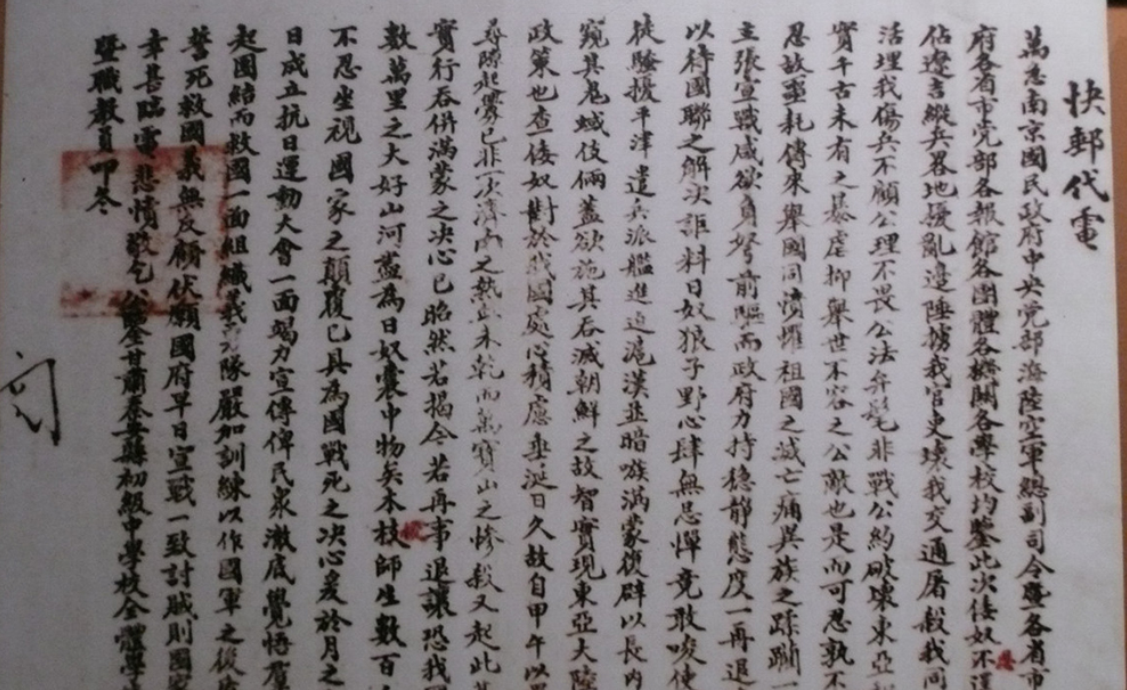 快郵代電
萬急南京國民政府中央党部海陸空軍總副司令暨各省市
府各省市党部各報館各團體各機關各學校均鑒此次倭奴不
佔遼吉縱兵畧地擾亂邊陲擄我官吏壞我交通屠殺我同
活埋我傷兵不顧公理不畏公法弁髦非戰公約破壞東亞
實千古未有之暴虐抑舉世不容之公敵也是而可忍孰不
忍故噩耗傳來舉國同憤懼祖國之滅亡痛異族之蹂躪一
主張宣戰咸欲負弩前驅而政府力持穩静態度一再退
以待國聯之解決詎料日奴狼子野心肆無忌憚竟敢唆使
徒騷擾平津遣兵派艦進迫滬漢並暗嗾滿蒙復辟以長内
窺其鬼蜮伎倆蓋欲施其吞滅朝鮮之故智實現東亞大陸
政策也查倭奴對於我國處心積慮垂涎日久故自甲午以
尋隙起釁已非一次濟南之熱血未乾而萬寶山之慘殺又起此
實行吞併滿蒙之决心已昭然若揭今若再事退讓恐我
數萬里之大好山河盡為日奴囊中物矣本校師生數百
不忍坐視國家之顛覆已具為國戰死之决心爰於月之
日成立抗日運動大會一面竭力宣傳俾民衆澈底覺悟羣
起團結而救國一面組織義勇隊嚴加訓練以作國軍之後
誓死救國義無反顧伏願國府早日宣戰一致討賊則國家
幸甚臨電悲憤敬乞公鑒甘肅泰安縣初級中學校全體學
暨職教員叩冬